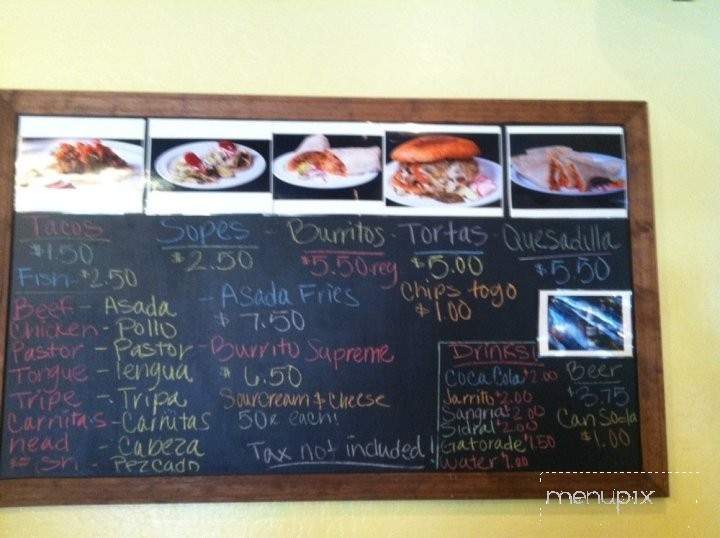 Tacos Sopes - Burritos - Tortas - Quesadilla
$1.50 $2.50 $5.50 reg $5.00 $5.50
Fish - $2.50
Beef - Asada
Chicken - Pollo
Pastor - Pastor
Tongue - lengua
Tripe - Tripa
Carnitas - Carnitas
head - Cabeza
Fish - Pezcado
- Asada Fries
$7.50
- Burrito Supreme
$6.50
Sour Cream & Cheese
50¢ each!
Tax not included!
Chips togo
$1.00
Drinks!
Coca Cola $2.00
Jarrito $2.00
Sangria $2.00
Sidral $2.00
Gatorade $1.50
water $1.00
Beer
$3.75
Can Soda
$1.00
menupix